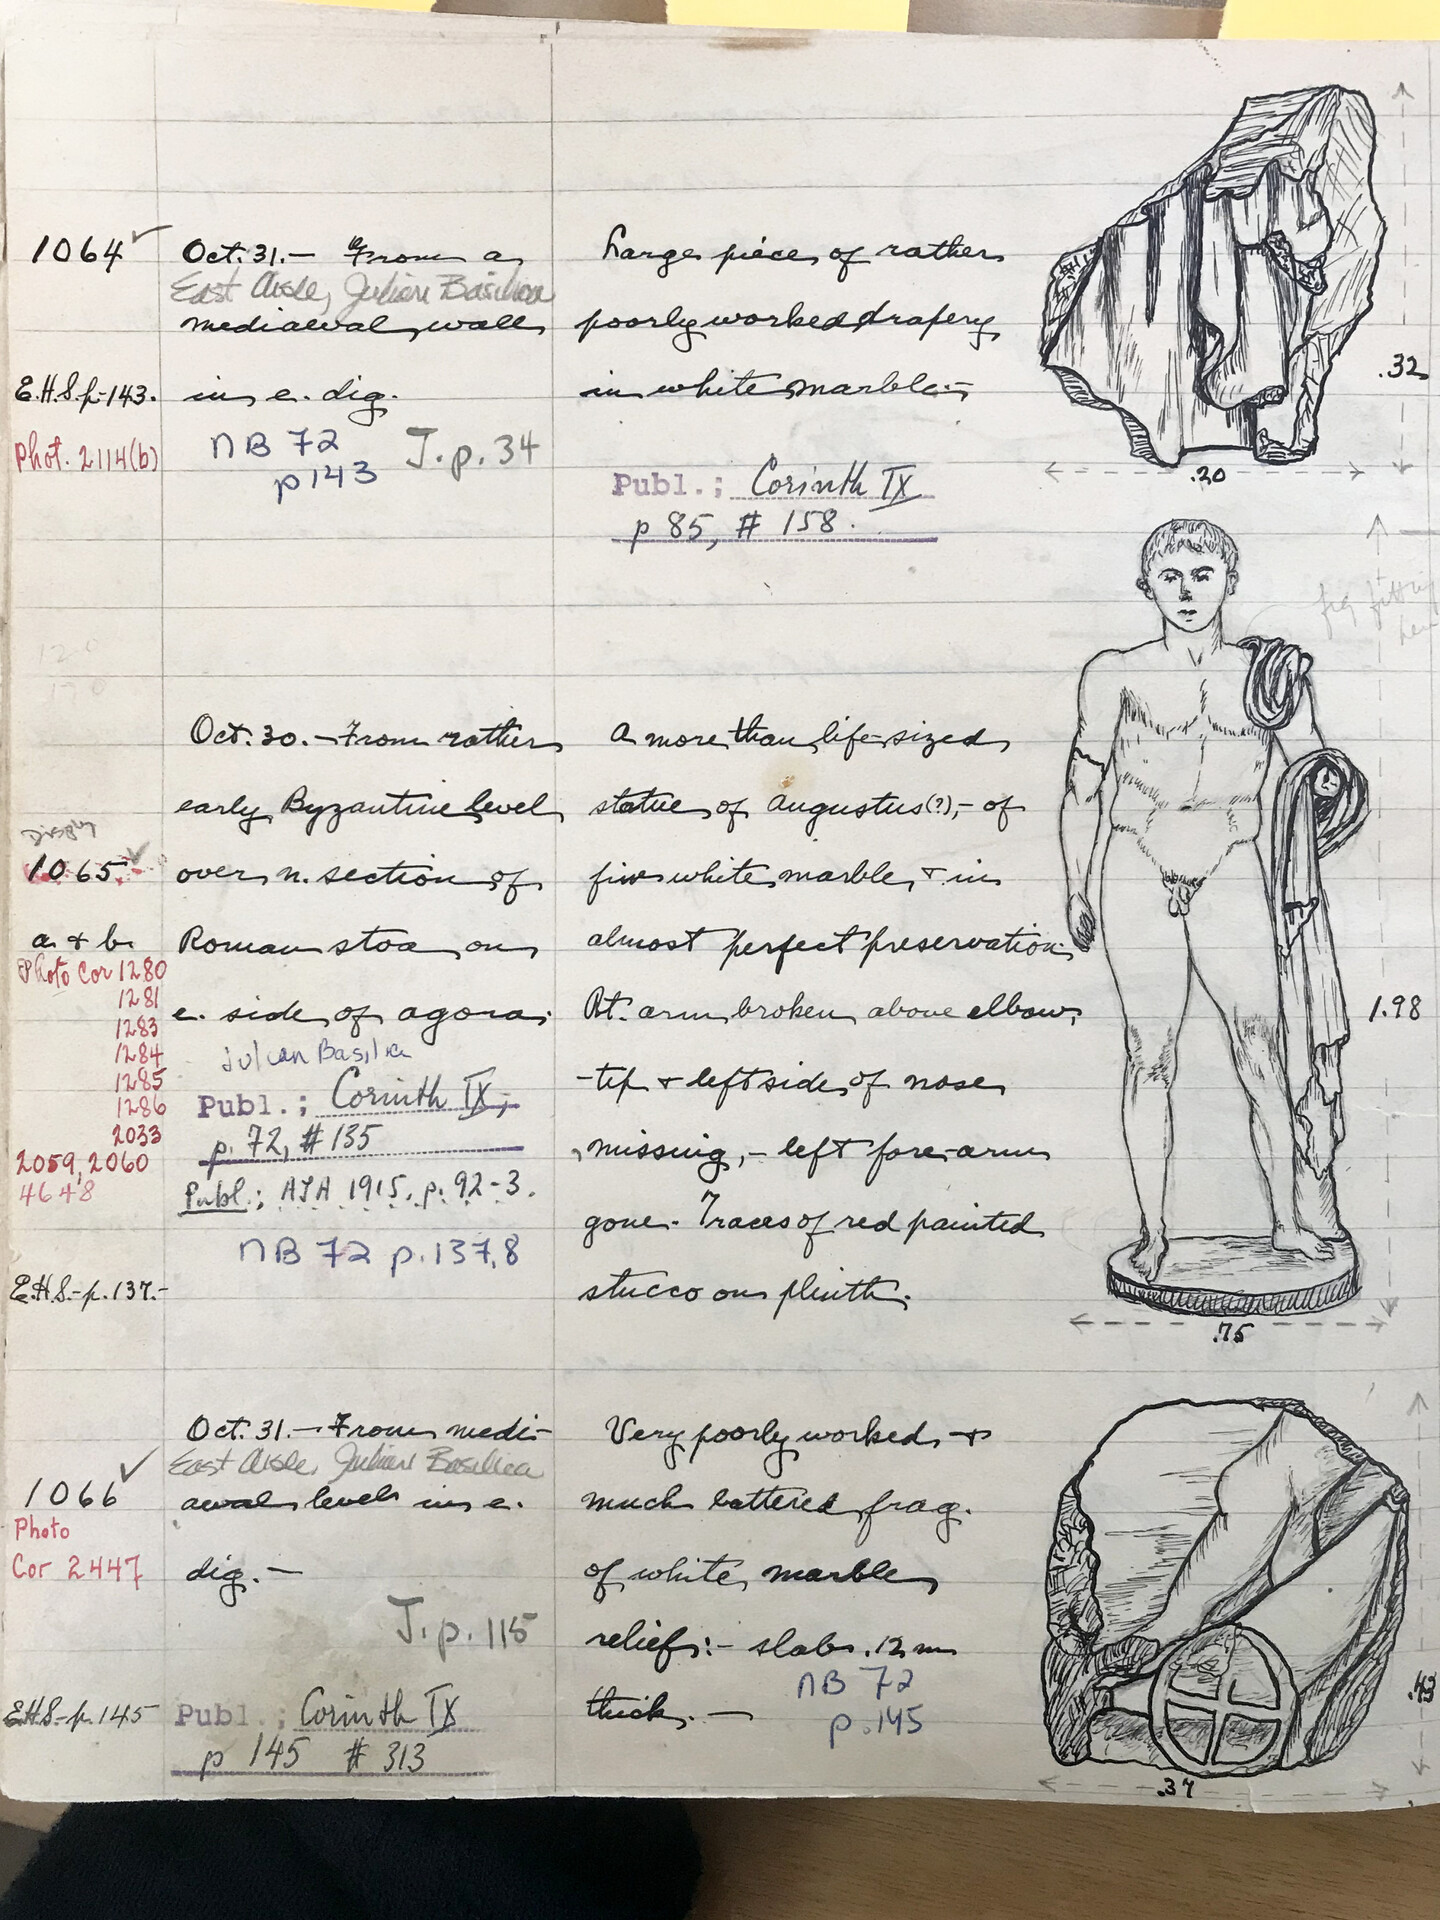 1064 ✓
E.H.S. p-143.
Phot. 2114(b)
Oct. 31.— From a
East Aisle, Julian Basilica
mediaeval wall
in e. dig.
NB 72
p 143
J. p. 34
Large piece of rather
poorly worked drapery
in white marble.—
Publ.; Corinth IX
p 85, # 158.
.32
.20
Display
1065. ✓
a & b.
Photo Cor 1280
1281
1283
1284
1285
1286
2033
2059, 2060
4648
E.H.S.-p. 137.-
Oct. 30.— From rather
early Byzantine level
over n. section of
Roman stoa on
e. side of agora.
Julian Basilica
Publ.; Corinth IX,
p. 72, # 135
Publ.; AJA 1915, p. 92-3.
NB 72 p. 137,8
A more than life-sized
statue of Augustus(?),- of
fine white marble, & in
almost perfect preservation.
Rt. arm broken above elbow,
-tip & left side of nose
missing,- left fore-arm
gone. Traces of red painted
stucco on plinth.
frg fitting
here
1.98
.75
1066 ✓
Photo
Cor 2447
E.H.S-p. 145
Oct. 31.— From medi-
East Aisle, Julian Basilica
aeval levels in e.
dig.—
J. p. 115
Publ.; Corinth IX
p 145 # 313
Very poorly worked &
much battered frag.
of white marble
relief:- slab .12 m
thick.—
NB 72
p. 145
.43
.37